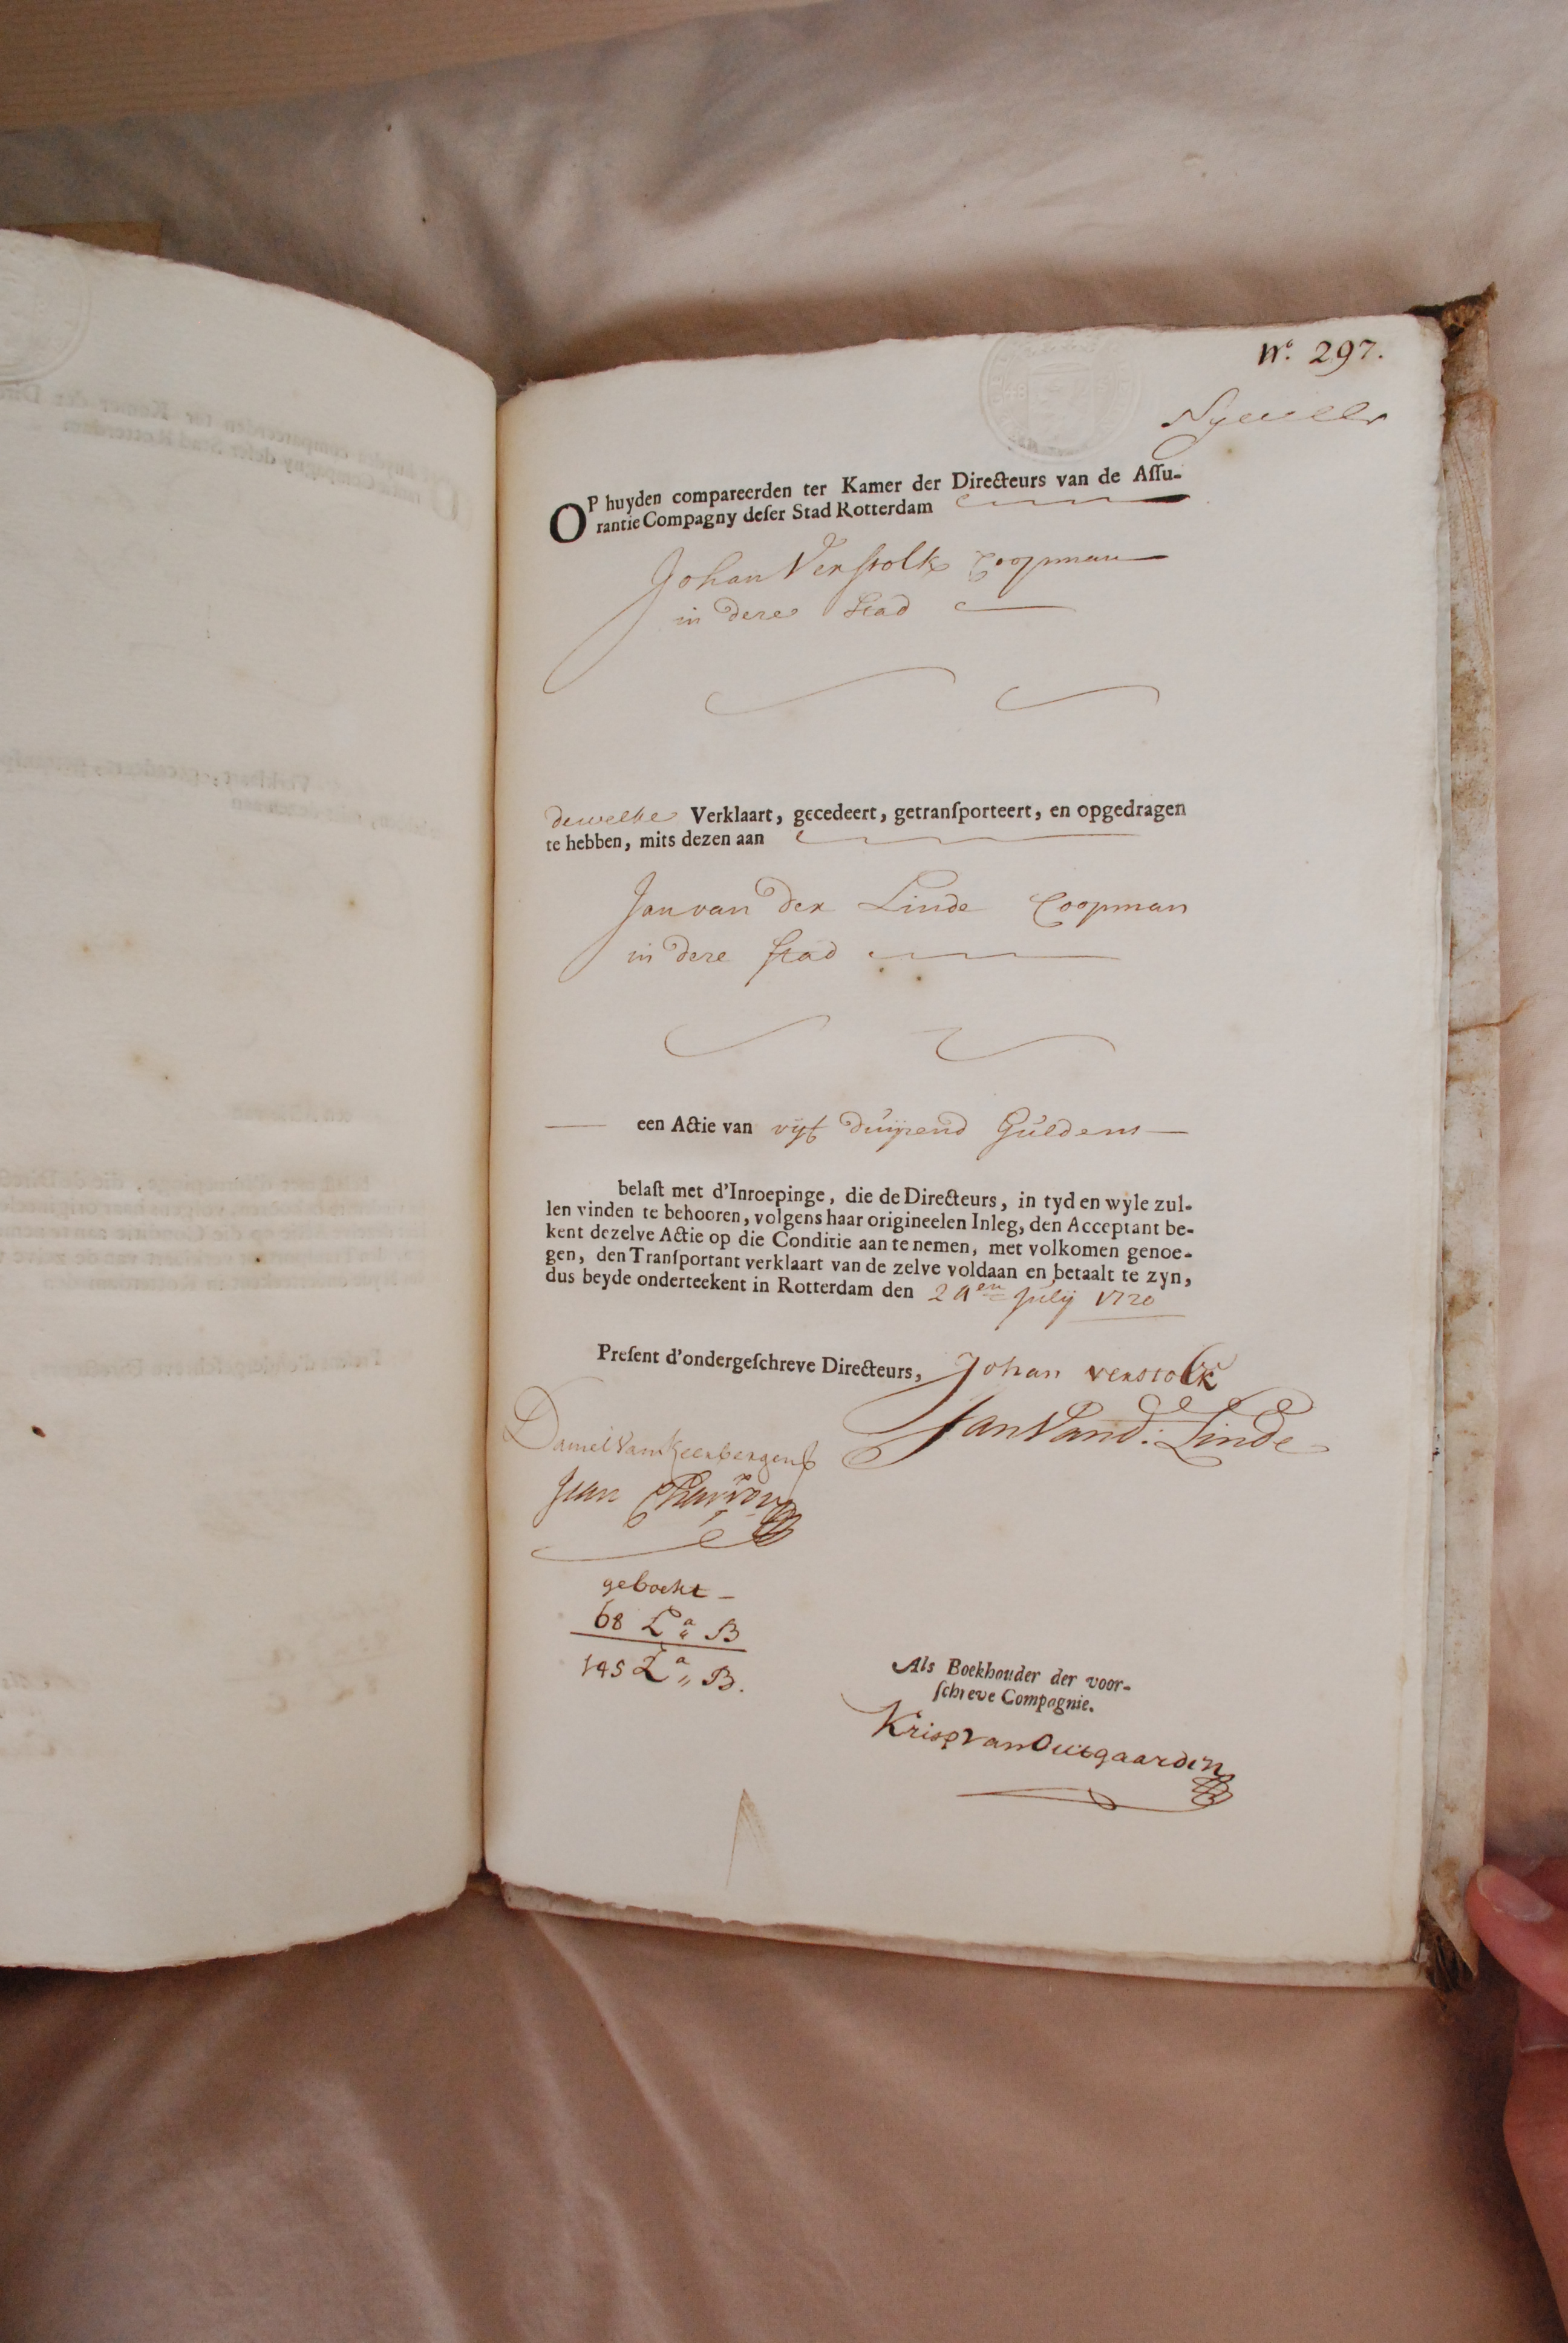 N.º 297.
OP huyden compareerden ter Kamer der Directeurs van de Assu-
rantie Compagny deser Stad Rotterdam
Johan Verstolk Coopman
in dese Stad
dewelke Verklaart, gecedeert, getransporteert, en opgedragen
te hebben, mits dezen aan
Jan van der Linde Coopman
in dese stad
een Actie van vijf duijsend Guldens
belast met d'Inroepinge, die de Directeurs, in tyd en wyle zul-
len vinden te behooren, volgens haar origineelen Inleg, den Acceptant be-
kent dezelve Actie op die Conditie aan te nemen, met volkomen genoe-
gen, den Transportant verklaart van de zelve voldaan en betaalt te zyn,
dus beyde onderteekent in Rotterdam den July 1720
Present d'ondergeschreve Directeurs, Johan verstolk
Jan Van d: Linde
Daniel Van Keerbergen
Jean Charron
geboekt
68 La B
145 La B.
Als Boekhouder der voor-
schreve Compagnie.
Krisp van Outgaarden